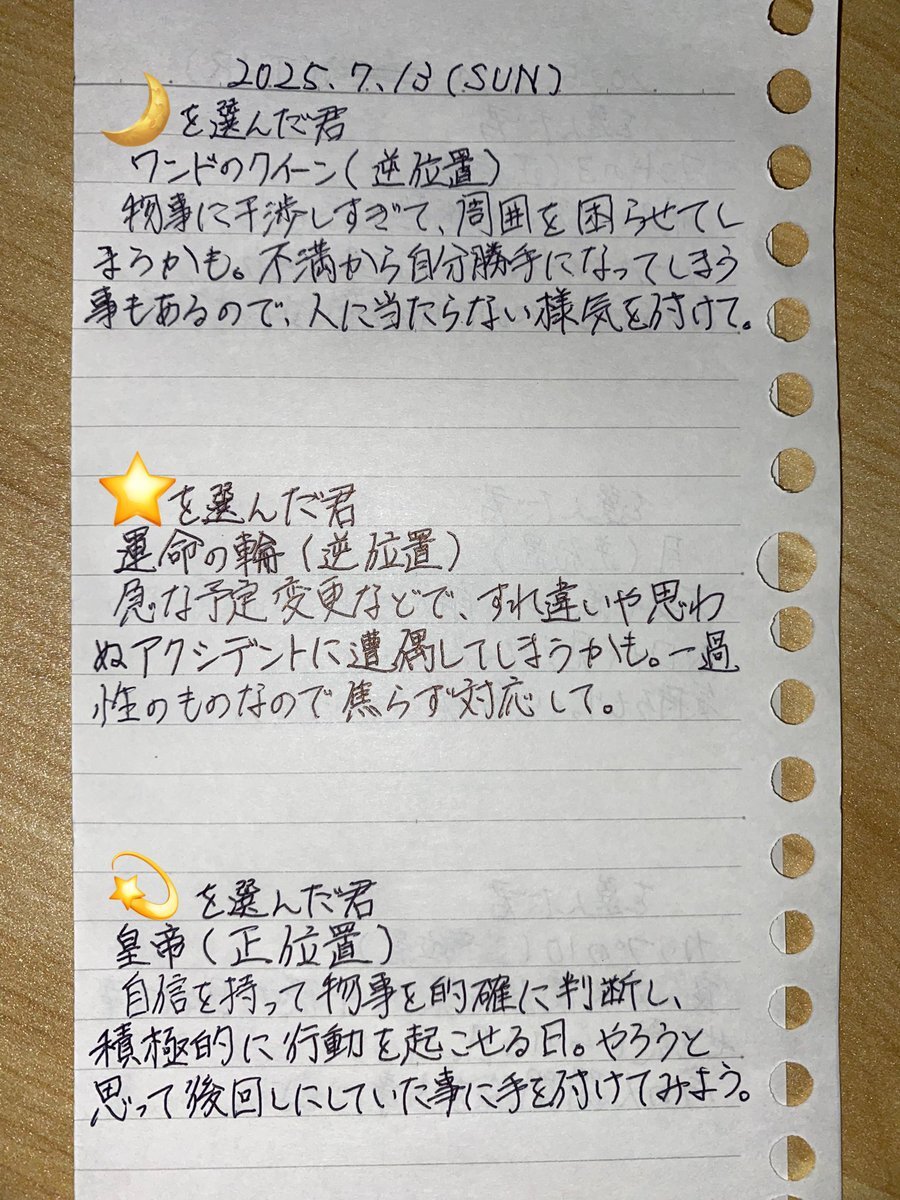 2025.7.13(SUN)
🌙を選んだ君
ワンドのクイーン(逆位置)
物事に干渉しすぎて、周囲を困らせてし
まうかも。不満から自分勝手になってしまう
事もあるので、人に当たらない様気を付けて。
⭐を選んだ君
運命の輪(逆位置)
急な予定変更などで、すれ違いや思わ
ぬアクシデントに遭遇してしまうかも。一過
性のものなので焦らず対応して。
💫を選んだ君
皇帝(正位置)
自信を持って物事を的確に判断し、
積極的に行動を起こせる日。やろうと
思って後回しにしていた事に手を付けてみよう。